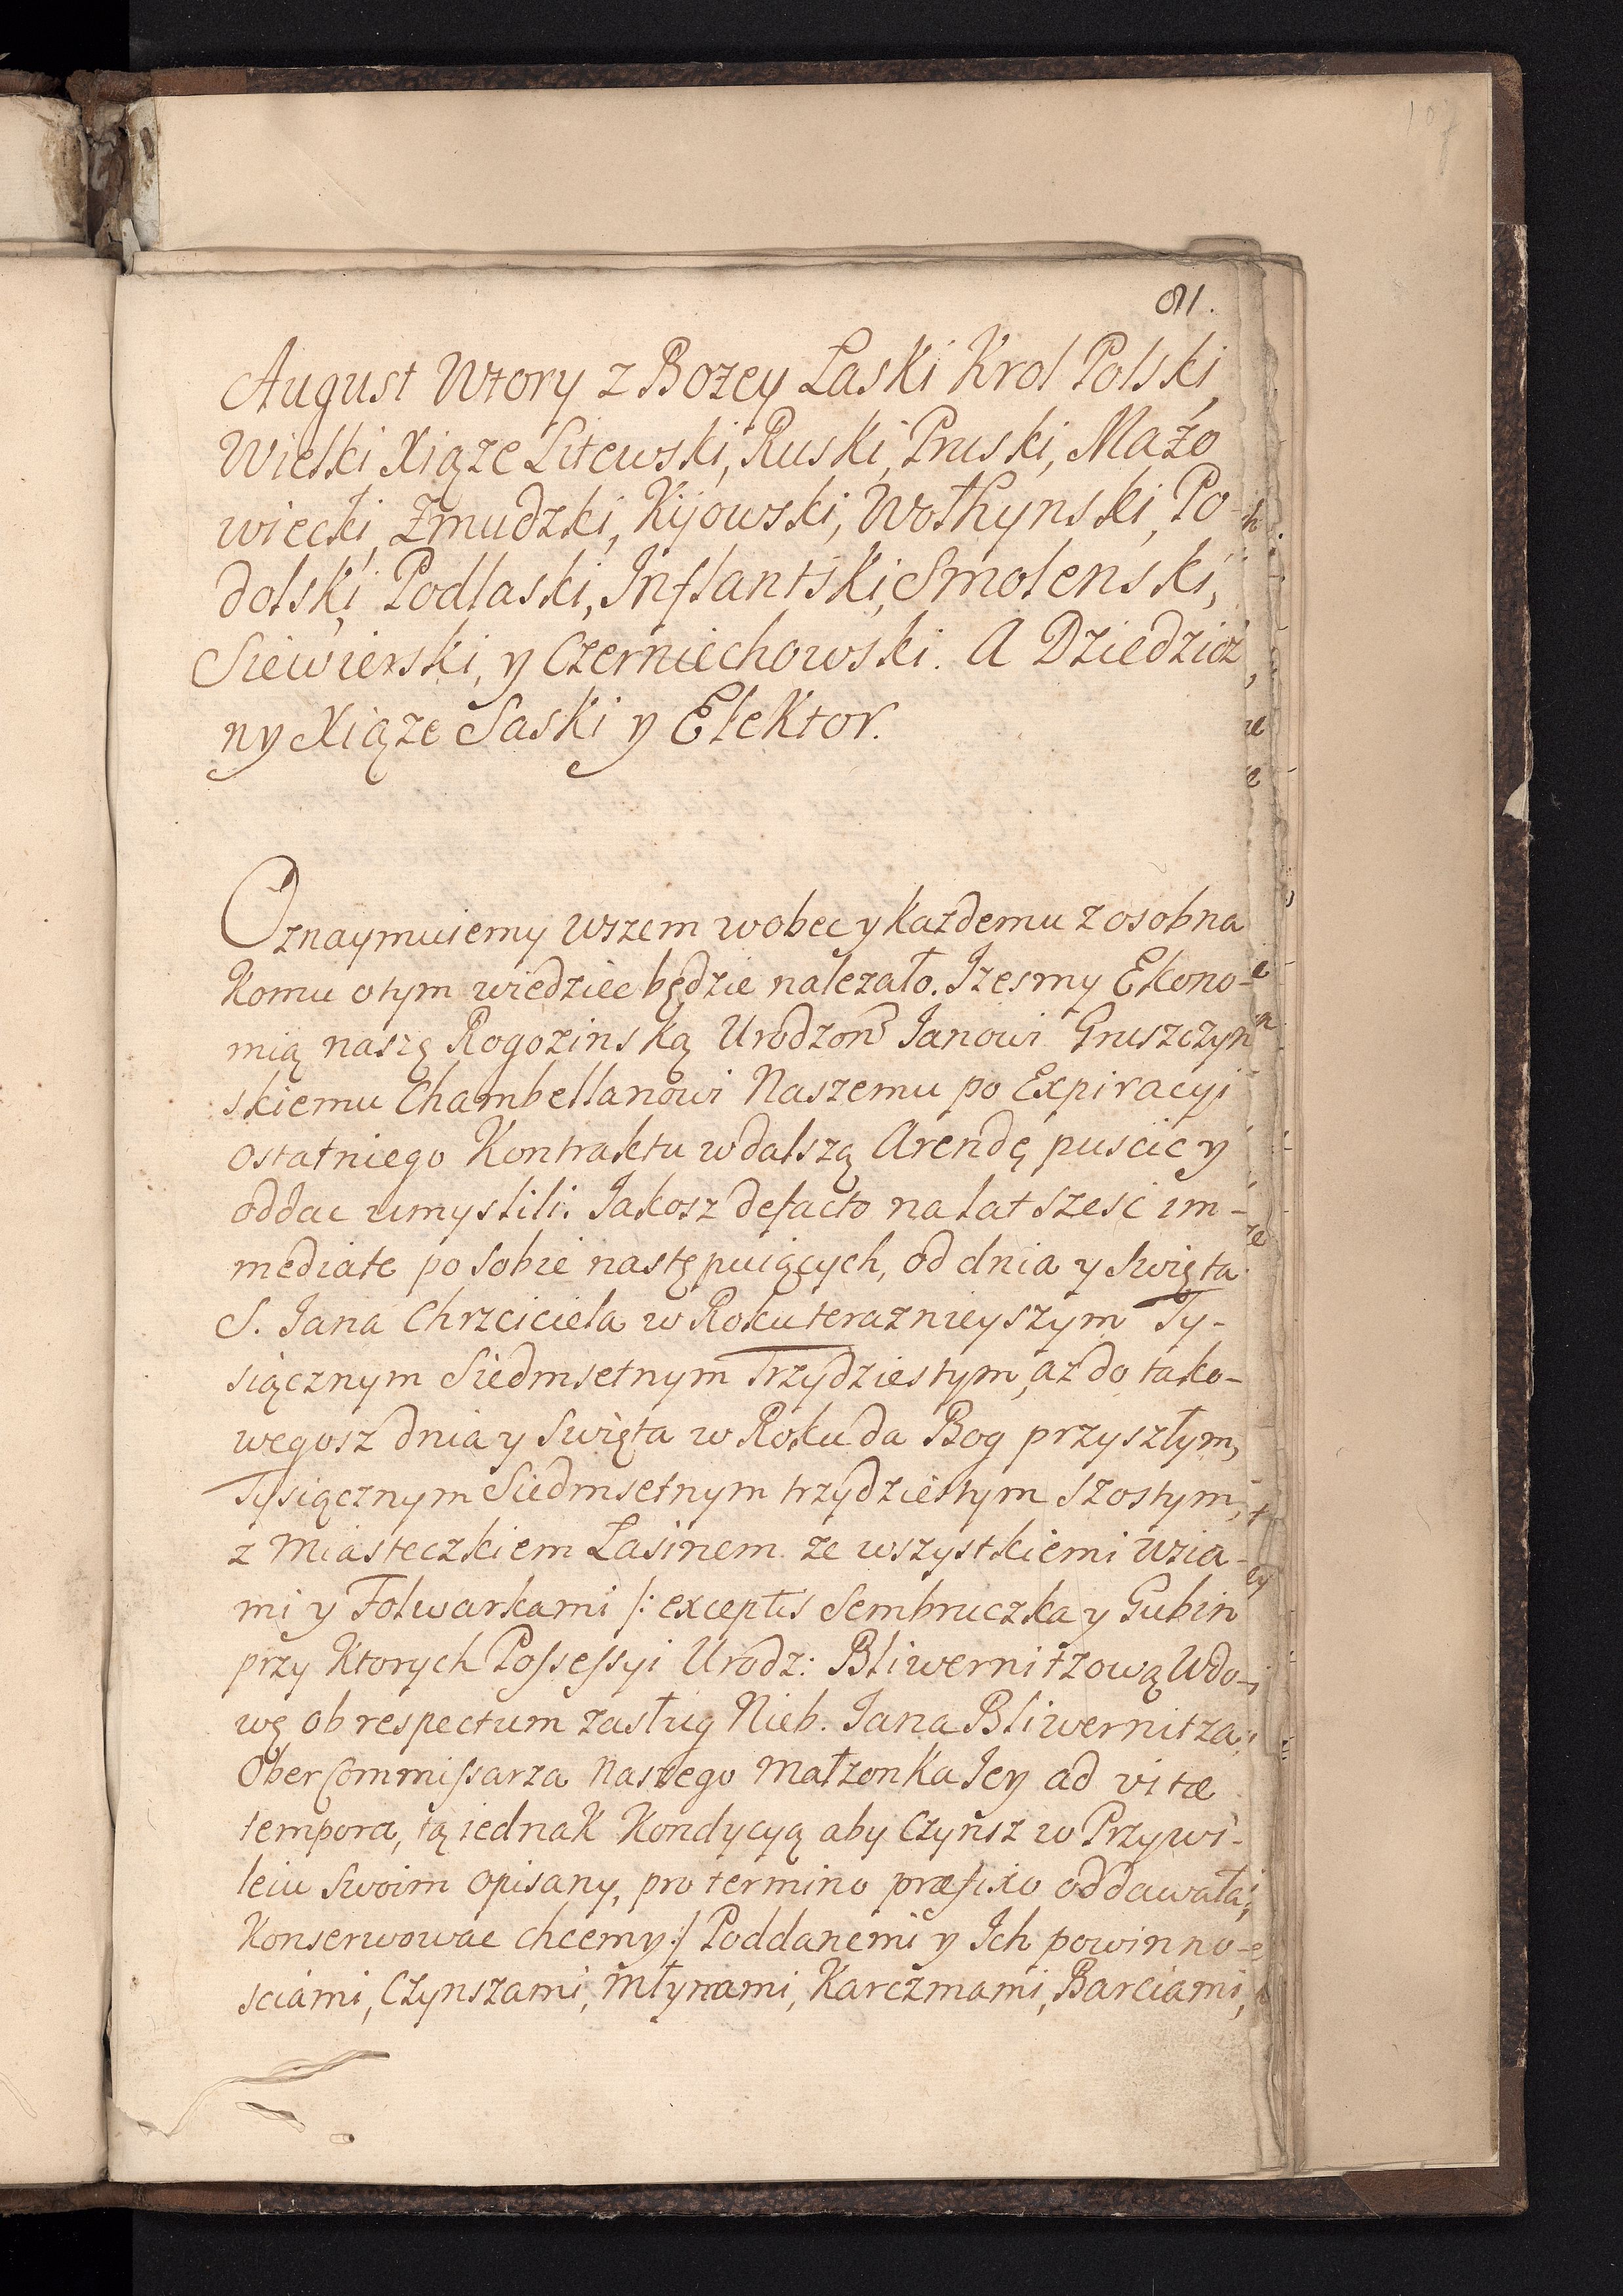 107
91.
August Wtory z Bozey Laski Krol Polski,
Wielki Xiąze Litewski, Ruski, Pruski, Mazo
wiecki, Zmudzki, Kijowski, Wołhynski, Po-
dolski, Podlaski, Inflantski, Smolenski,
Siewierski, y Czerniechowski. A Dziedzicz
ny Xiąze Saski y Elektor.
Oznaymuiemy wszem wobec y każdemu z osobna
Komu o tym wiedziec będzie nalezało. Izesmy Ekono-
mią naszę Rogozinską Urodzon͠ Ianowi Gruszczyn
skiemu Chambellanowi Naszemu po Expiracyi
ostatniego Kontraktu w dalszą Arendę puscic y
oddac umyslili. Iakosz defacto na lat szesc im-
mediate po sobie następuiących, od dnia y swięta
S. Iana Chrzciciela w Roku teraznieyszym Ty-
siącznym Siedmsetnym Trzydziestym, az do tako-
wegosz dnia y swięta w Roku da Bog przyszłym,
Tysiącznym Siedmsetnym trzydziestym szostym,
z Miasteczkiem Lasinem ze wszystkiemi wsia-
mi y Folwarkami /: exceptis Sembruczka y Gubin
przy Ktorych Possessyi Urodz: Bliwernitzową Wdo-
wę ob respectum zasług Nieb. Iana Bliwernitza
Ober Commissarza Naszego Małzonka Iey ad vitæ
tempora, tą iednak Kondycyą aby Czynsz w Przywi-
leiu swoim opisany, pro termino præfixo oddawała,
Konserwowac chcemy :/ Poddanemi y Ich powinno-
sciami, Czynszami, Młynami, Karczmami, Barciami,